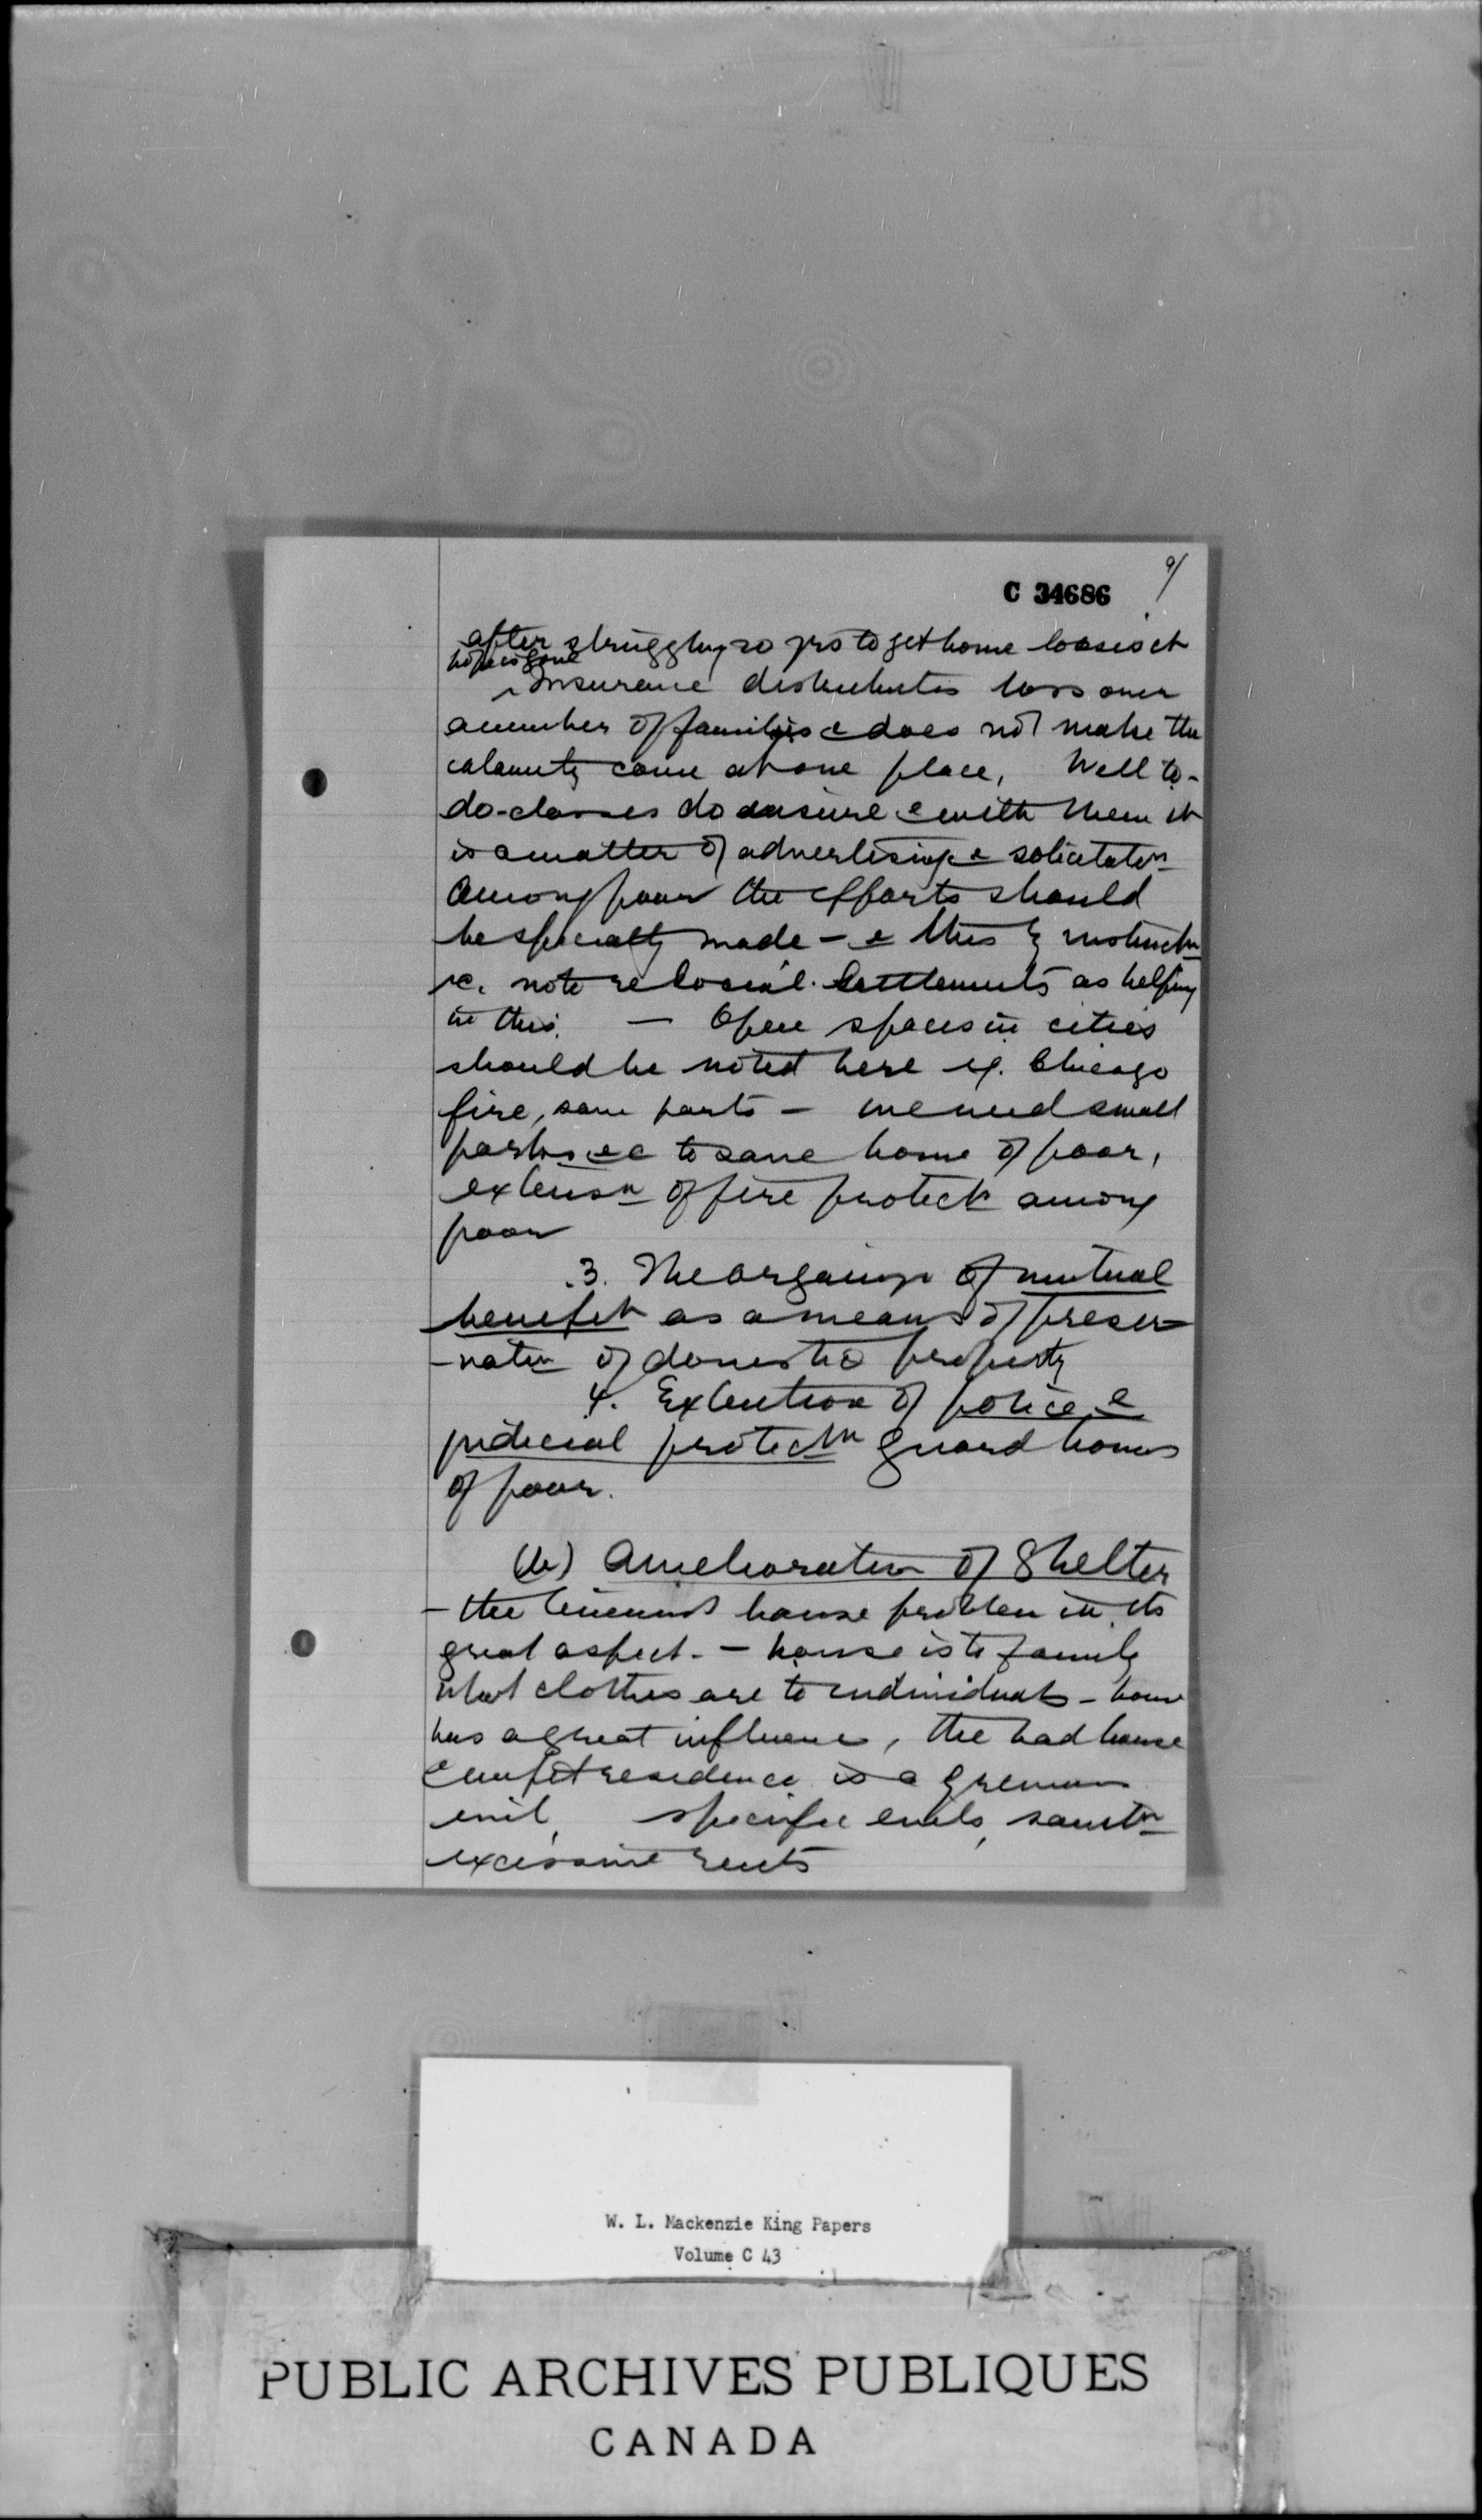 9/
C 34686
after struggling 20 yrs to get home loses it
hope is gone
Insurance distributes loss over
a number of families & does not make the
calamity come at one place, Well to-
do-classes do insure & with them it
is a matter of advertising & solicitatn
Among poor the efforts should
be specially made - & this by instructn
note re Social Settlements as helping
in this. — Open spaces in cities
should be noted here eg. Chicago
fire, same parts - we need small
parks to save home of poor,
extensn of fire protectn among
poor
3. The organizn of mutual
benefit as a means of preser-
-vatn of domestic property
4. Extention of police &
judicial protectn guard homes
of poor.
(b) Amelioration of Shelter
- the tenement house problem in its
great aspect. - house is to family
what clothes are to individuals - house
has a great influence, the bad house
& unfit residence is a grievous
evil, specific evils, sanitn
excessive rents
W. L. Mackenzie King Papers
Volume C 43
PUBLIC ARCHIVES PUBLIQUES
CANADA